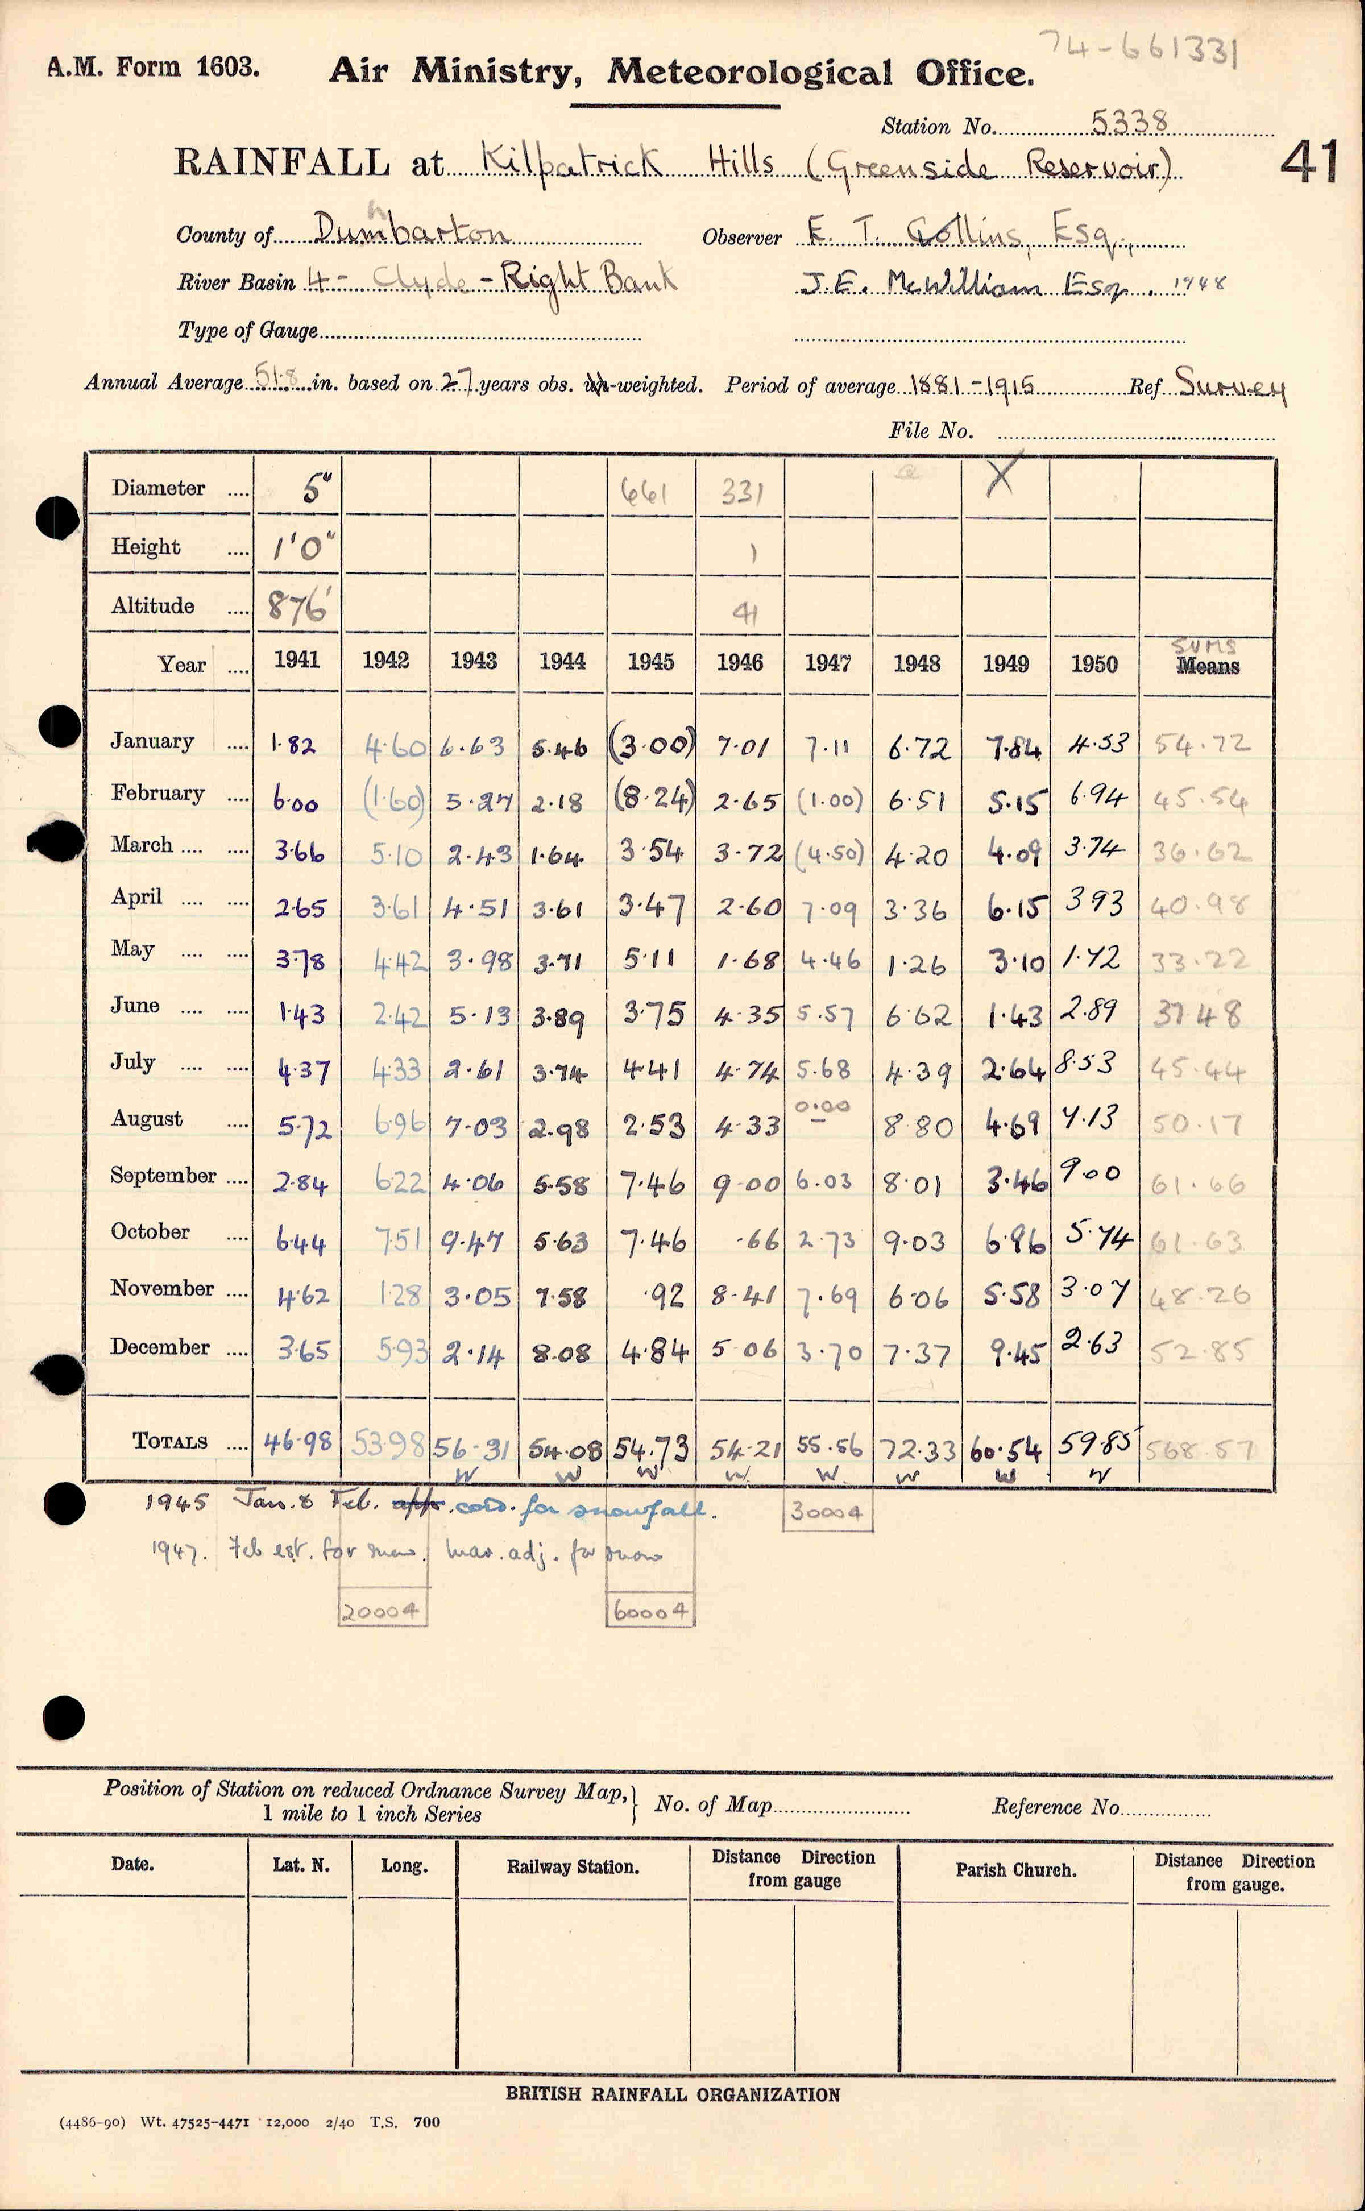 74-661331
A.M. Form 1603. Air Ministry, Meteorological Office.
Station No. 5338
RAINFALL at Kilpatrick Hills (Greenside Reservoir) 41
County of Dumbarton Observer E. T. Collins, Esq.,
River Basin 4 - Clyde - Right Bank J. E. McWilliam Esq. 1948
Type of Gauge
Annual Average 51.8 in. based on 27 years obs. un-weighted. Period of average 1881-1915 Ref. Survey
File No.
Diameter .... 5" 661 331 X
Height .... 1'0" 1
Altitude .... 876' 41
SUMS
Year .... 1941 1942 1943 1944 1945 1946 1947 1948 1949 1950 Means
January .... 1.82 4.60 6.63 5.46 (3.00) 7.01 7.11 6.72 7.84 4.53 54.72
February .... 6.00 (1.60) 5.27 2.18 (8.24) 2.65 (1.00) 6.51 5.15 6.94 45.54
March .... .... 3.66 5.10 2.43 1.64 3.54 3.72 (4.50) 4.20 4.09 3.74 36.62
April .... .... 2.65 3.61 4.51 3.61 3.47 2.60 7.09 3.36 6.15 3.93 40.98
May .... .... 3.78 4.42 3.98 3.71 5.11 1.68 4.46 1.26 3.10 1.72 33.22
June .... .... 1.43 2.42 5.13 3.89 3.75 4.35 5.57 6.62 1.43 2.89 37.48
July .... .... 4.37 4.33 2.61 3.74 4.41 4.74 5.68 4.39 2.64 8.53 45.44
August .... 5.72 6.96 7.03 2.98 2.53 4.33 0.00 8.80 4.69 7.13 50.17
September .... 2.84 6.22 4.06 5.58 7.46 9.00 6.03 8.01 3.46 9.00 61.66
October .... 6.44 7.51 9.47 5.63 7.46 .66 2.73 9.03 6.96 5.74 61.63
November .... 4.62 1.28 3.05 7.58 .92 8.41 7.69 6.06 5.58 3.07 48.26
December .... 3.65 5.93 2.14 8.08 4.84 5.06 3.70 7.37 9.45 2.63 52.85
TOTALS .... 46.98 53.98 56.31 54.08 54.73 54.21 55.56 72.33 60.54 59.85 568.57
W W W W W W W W
1945 Jan. & Feb. appr. cord. for snowfall. 30004
1947. Feb est. for snow. Mar. adj. for snow
20004 60004
Position of Station on reduced Ordnance Survey Map, } No. of Map Reference No.
1 mile to 1 inch Series
Date. Lat. N. Long. Railway Station. Distance Direction from gauge Parish Church. Distance Direction from gauge.
BRITISH RAINFALL ORGANIZATION
(4486-90) Wt. 47525-4471 12,000 2/40 T.S. 700